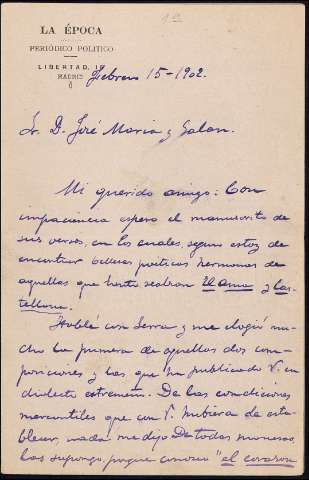 LA ÉPOCA
PERIÓDICO POLITICO
LIBERTAD, 18
MADRID
Febrero 15-1902.
Sr. D. José Maria y Galan.
Mi querido amigo: Con
impaciencia espero el manuscrito de
sus versos, en los cuales, seguro estoy de
encontrar bellezas poéticas hermanas de
aquellas que hasta realzan El Ama y Cas-
tellana.
Hablé con Serra y me elogió mu-
cho la primera de aquellas dos com-
posiciones y las que ha publicado V. en
dialecto extremeño. De las condiciones
mercantiles que con V. hubiera de esta-
blecer, nada me dijo. De todas maneras,
las supongo, porque conozco "el corazon